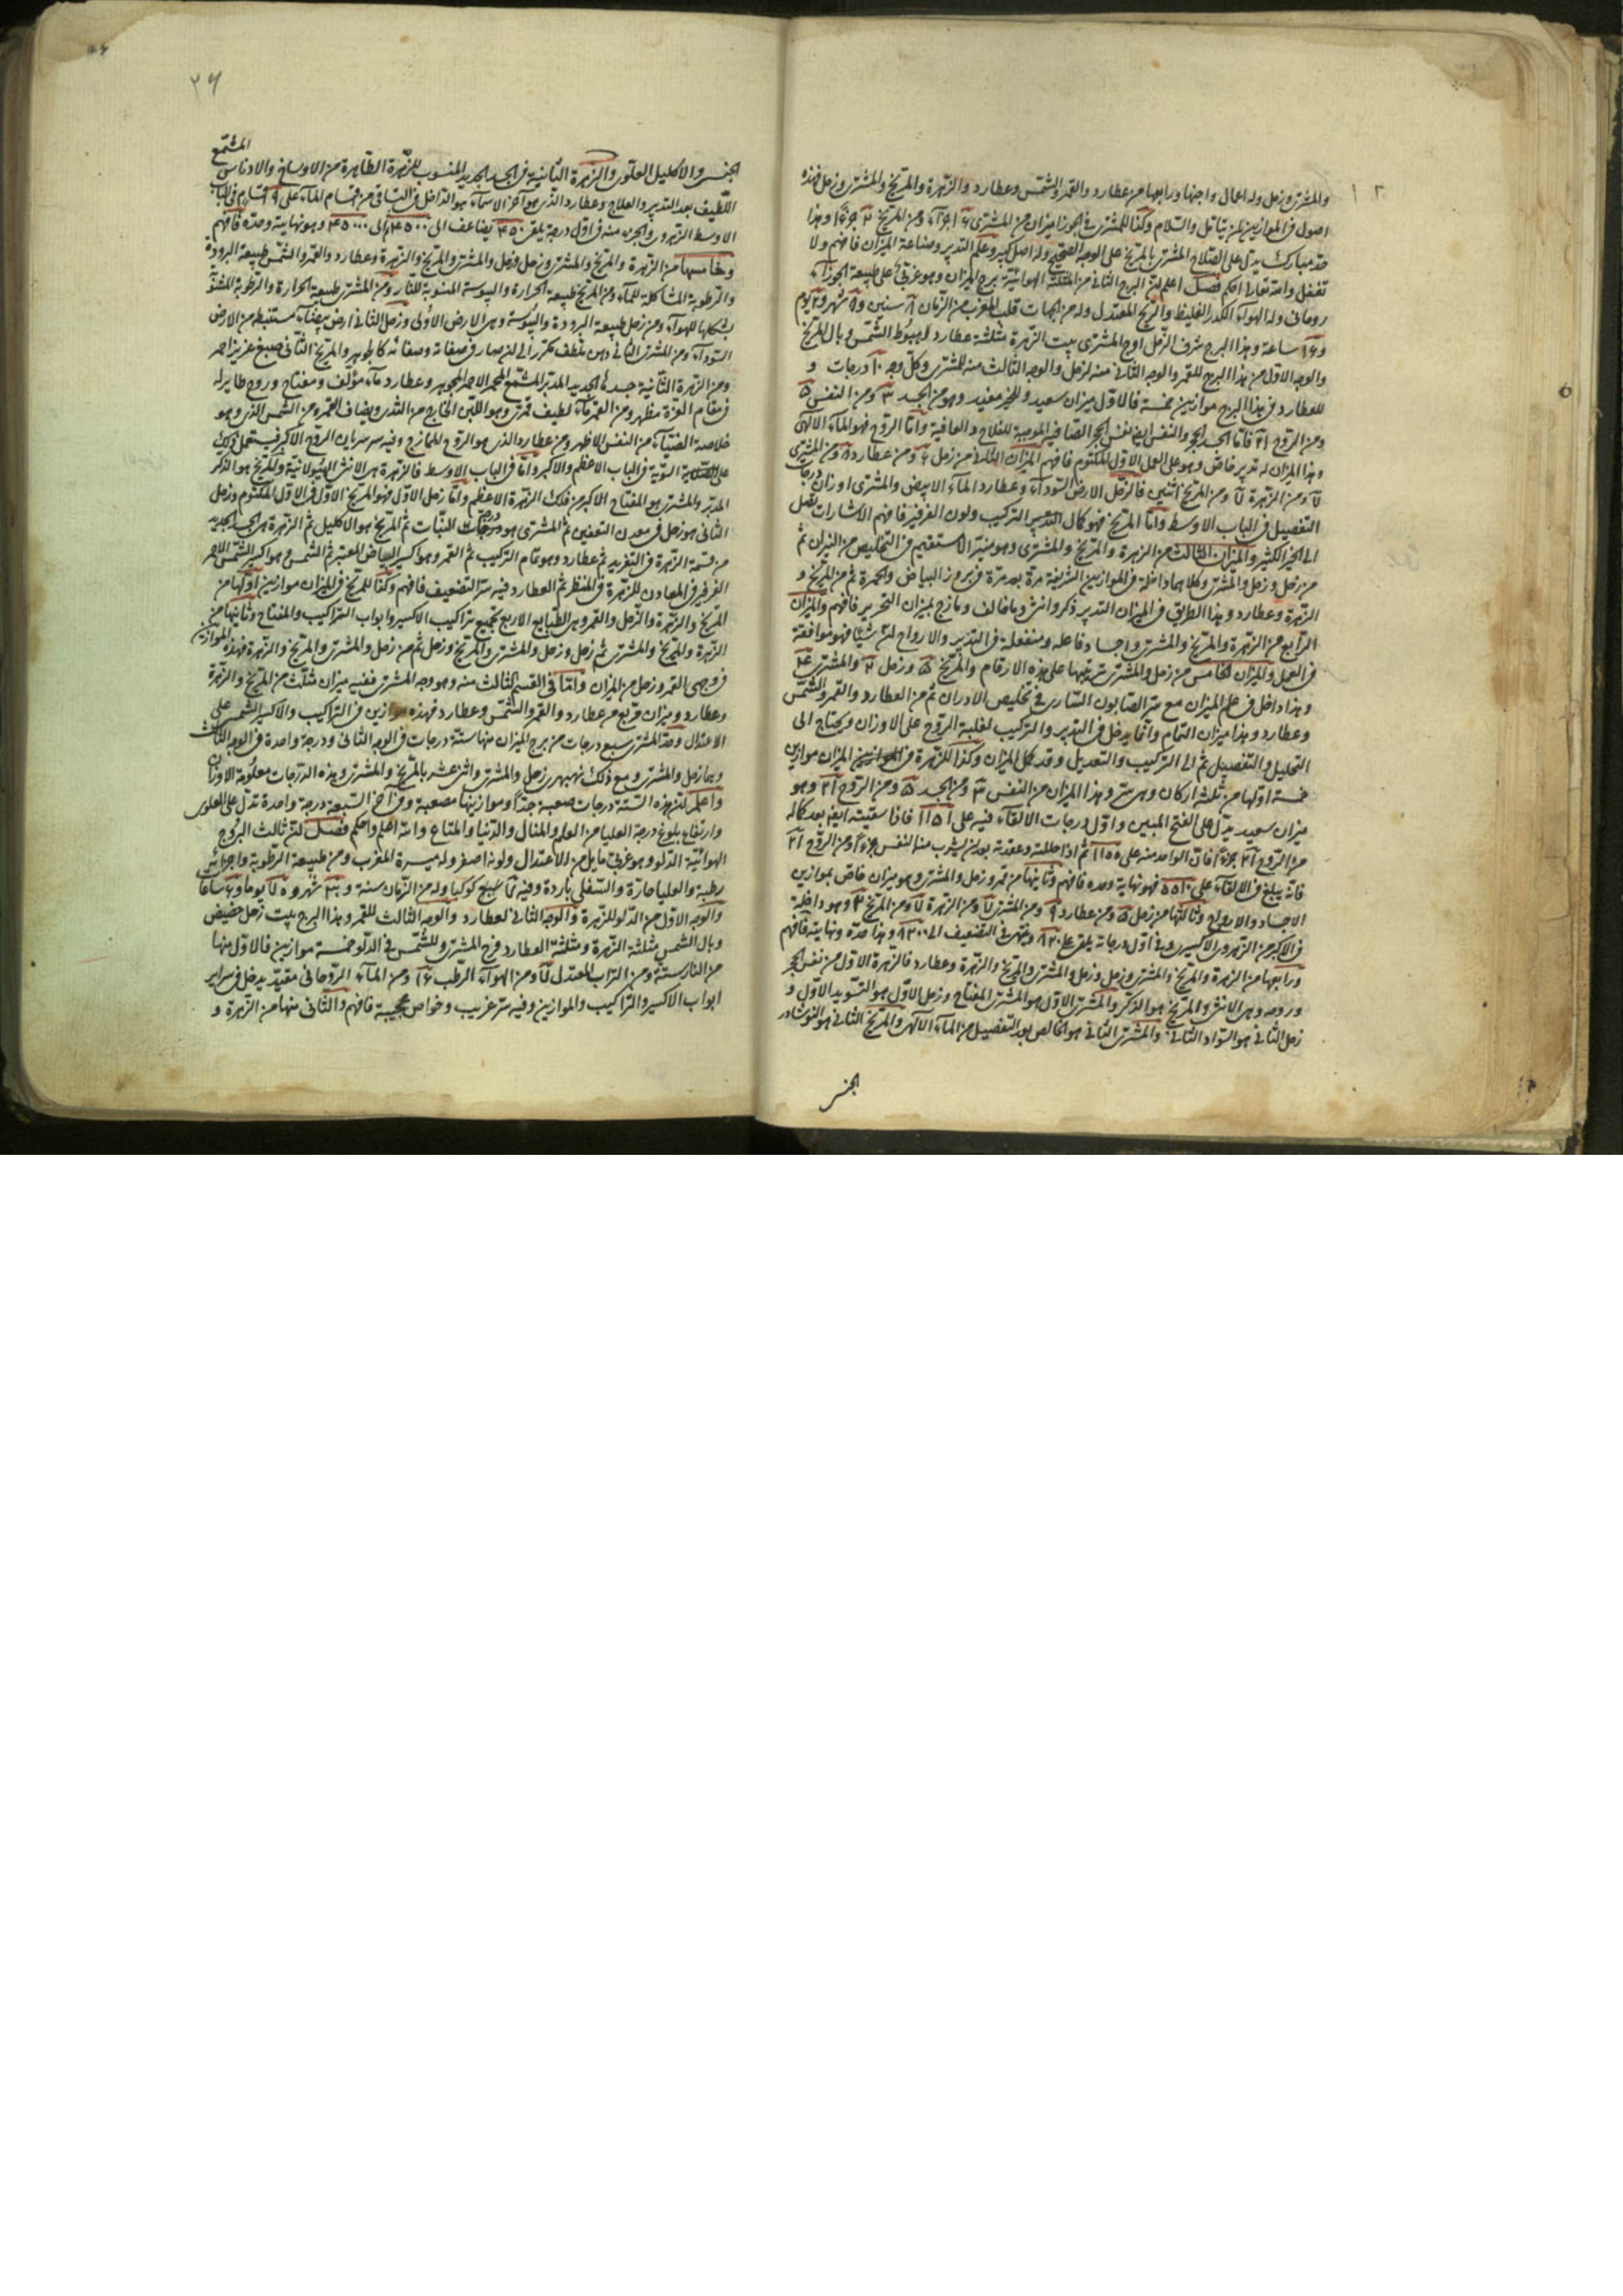 والمشترى وزحل وله اعمال واجنها ورابعها من عطارد والقمر والشمس وعطارد والزهرة والمريخ والمشترى وزحل فهذه
اصول فى الموازين لمن يتأمل والسلام وكذا للمشترى فى الجوزا ميزان من المشترى ٦ اجزاء ومن المريخ ٢ جزءا وهذا
حد مبارك يدل على الصلاح المشترى بالمريخ على الوجه الصحيح وله اصل كبير وعلم التدبير وصناعة الميزان فافهم ولا
تغفل والله تعالى احكم فصل اعلم ان البرج الثانى من المثلثة الهوائية برج الميزان وهو غربى على طبيعة الجوزاء
روحانى وله الهواء الكدر الغليظ والريح المعتدل وله من الجهات قلب المغرب من الزمان ٨ سنين و شهر و يوم
و ساعة وهذا البرج شرف الزحل اوج المشترى بيت الزهرة مثلثة عطارد لهبوط الشمس وبال المريخ
والوجه الاول من هذا البرج للقمر والوجه الثانى منه لزحل والوجه الثالث منه للمشترى وكل وجه ١٠ درجات و
للعطارد فى هذا البرج موازين خمسة فالاول ميزان سعيد وللخير مفيد وهو من الجسد ٣ ومن النفس ٥
ومن الروح فاما الجسد الحجر والنفس الحجر الصافية الموجبة للفلاح والعافية واما الروح فهو الماء الالهى
وهذا الميزان له تدبير خاص وهو على العمل الاول المكتوم فافهم الميزان الثانى من زحل ٤ ومن عطارد ٨ ومن المشترى
ومن الزهرة ومن المريخ اثنين فالزحل الارض السوداء وعطارد الماء الابيض والمشترى اوزان درجات
التفصيل فى الباب الاوسط واما المريخ فهو كمال التدبير التركيب ولون الفرفير فافهم الاشارات تصل
الى الخير الكثير والميزان الثالث من الزهرة والمريخ والمشترى وهو منبر الاستقيم فى التخليص من النيران ثم
من زحل وزحل والمشترى وكلاهما داخلة فى الموازين الشريفة مرة بعد مرة فى بروز البياض والحمرة ثم من المريخ و
الزهرة وعطارد وهذا الطريق فى الميزان التدبير ذكر وانثى وما خالف ومازج بميزان التحرير فافهم والميزان
الرابع من الزهرة والمريخ والمشترى واجساد فاعله ومنفعلة فى التدبير والارواح لمن شيئا فهو موافقة
فى العمل والميزان الخامس من زحل والمشترى ترتيبها على هذه الارقام والمريخ ٥ وزحل ٢ والمشترى
وهذا داخل فى علم الميزان مع سر الصابون السارى فى تخليص الاوران ثم من العطارد والقمر والشمس
وعطارد وهذا ميزان التمام وانما يدخل فى التدبير والتركيب لغلبة الروح على الاوزان ويحتاج الى
التحليل والتفصيل ثم الى التركيب والتعديل وقد كمل الميزان وكذا للزهرة فى الميزان موازين
خمسة اولها من ثلثة اركان وهى ستر وهذا الميزان من النفس ٣ ومن الجسد ٥ ومن الروح وهو
ميزان سعيد يدل على الفتح المبين واول درجات الالقاء فيه على فاذا سقيته ايضا بعد كماله
من الروح جزءا فان الواحد منه على ثم اذا حللته وعقدته بعد ان يشرب من النفس جزءا ومن الروح
فانه يبلغ فى الالقاء على فهو نهاية وحده فافهم وثانيها من قمر وزحل والمشترى وهو ميزان خاص بموازين
الاجساد والارواح وثالثها من زحل ٥ ومن عطارد ٩ ومن المشترى ومن الزهرة ومن المريخ وهو داخلة
فى الاكبر من الزهرى الاكسير وفى اول درجاته يلقى على ٨٢٠ وينتهى فى التضعيف الى ٨٢٠٠ وهذا حده ونهايته فافهم
ورابعها من الزهرة والمريخ والمشترى وزحل وزحل والمشترى والمريخ والزهرة وعطارد فالزهرة الاول من نفس الحجر
وروحه وهى الانثى والمريخ هو الذكر والمشترى الاول هو المشترى المفتاح وزحل الاول هو التسويد الاول و
زحل الثانى هو السواد الثانى والمشترى الثانى هو الخالص بعد التفصيل من الماء الالهى والمريخ الثانى هو النوشادر
الجنس
٢٦
الجنس والاكليل العلوى والزهرة الثانية فى الجسد الجديد المنسوب للزهرة الطاهرة من الاوساخ والادناس المشمع
اللطيف بعد التدبير والعلاج وعطارد الذى هو آخر الاسماء هو الداخل فى الباقى من اقسام الماء على ٩ اقسام فى الباب
الاوسط الزهروى والجزء منه فى اول درجة يلقى ٤٥٠ يضاعف الى ٤٥٠٠ والى ٤٥٠٠٠ وهو نهايته وحده فافهم
وخامسها من الزهرة والمريخ والمشترى وزحل وزحل والمشترى والمريخ والزهرة وعطارد والقمر والشمس طبيعة البرودة
والرطوبة المشاكلة للماء ومن المريخ طبيعة الحرارة واليبوسة المنسوبة للنار ومن المشترى طبيعة الحرارة والرطوبة
بشكلها للهواء ومن زحل طبيعة البرودة واليبوسة وهى الارض الاولى وزحل الثانى ارض بيضاء مستنبط من الارض
السوداء ومن المشترى الثانى دهن ملطف مكرر الى ان صار فى صفاته وصفائه كالجوهر والمريخ الثانى صبغ عزيز احمر
ومن الزهرة الثانية جسدها الجديد المدبر المشمع المحمر الاحمر الجوهر وعطارد ماء مؤلف ومفتاح وروح طايرله
فى مقام العزة مظهر ومن القمر ماء لطيف قمرى وهو اللبن الخارج من الثدى ويضاف القمر ومن الشمس الذى وهو
خلاصة الضياء من النفس الاظهر ومن عطارد الذى هو الروح الممازج وفيه سر سريان الروح الاكبر
على السوية فى الباب الاعظم والاكبر واما فى الباب الاوسط فالزهرة هى الانثى الهيولانية والمريخ هو الذكر
المدبر والمشترى هو المفتاح الاكبر من فلك الزهرة الاعظم واما زحل الاول فهو المريخ الاول فى الاول المكتوم وزحل
الثانى هو زحل فى معدن التعفين ثم المشترى هو درجات النبات ثم المريخ هو الاكليل ثم الزهرة هى الجسد الجديد
من قسمة الزهرة فى التفريد ثم عطارد وهو تمام التركيب ثم القمر وهو اكسير البياض المعتبر ثم الشمس وهو اكسير الشمس الاحمر
الفرفيرى المعادن للزهرة فى المنظر ثم العطارد فيه سر التضعيف فافهم وكذا للمريخ فى الميزان موازين اولها من
المريخ والزهرة والزحل والقمر وهى الطبايع الاربع بجميع تراكيب الاكسير وابواب التراكيب والمفتاح وثانيها من
الزهرة والمريخ والمشترى ثم زحل وزحل والمشترى والمريخ وزحل ثم من زحل والمشترى والمريخ والزهرة فهذه الموازين
فى وجهى القمر وزحل من الميزان واما فى القسم الثالث منه وهو وجه المشترى ففيه ميزان مثلث من المريخ والزهرة
وعطارد وميزان مربع من عطارد والقمر والشمس وعطارد فهذه موازين فى التراكيب والاكسير الشمس على
الاعتدال وحد المشترى سبع درجات من برج الميزان منها ستة درجات فى الوجه الثانى ودرجة واحدة فى الوجه الثالث
وبها زحل والمشترى ومع ذلك بهرى زحل والمشترى واثنى عشر بالمريخ والمشترى وهذه الدرجات معلومة الاوزان
واعلم ان هذه الستة درجات صعبة جدا وموازينها صعبة وفى آخر السبعة درجة واحدة تدل على العلوى
وارتفاع بلوغ درجة العليا من العلم والمثال والدنيا والمتاع والله اعلم واحكم فصل ان ثالث البروج
الهوائية الدلو وهو غربى مايل من الاعتدال ولونه اصفر وله ميسرة المغرب ومن طبيعة الرطوبة واجزائه
رطبة والعليا حارة والسفلى باردة وفيه سبع كوكبا وله من الزمان سنة و شهر و يوما و ساعات
والوجه الاول من الدلو للزهرة والوجه الثانى لعطارد والوجه الثالث للقمر وهذا البرج بيت زحل حضيض
وبال الشمس مثلثة الزهرة ومثلثة العطارد فرح المشترى وللشمس فى الدلو خمسة موازين فالاول منها
من النار ستة ومن التراب المعتدل ومن الهواء الرطب ١٦ ومن الماء الروحانى مقيد يدخل فى سراير
ابواب الاكسير والتراكيب والموازين وفيه سر غريب وخواص عجيبة فافهم والثانى منها من الزهرة و